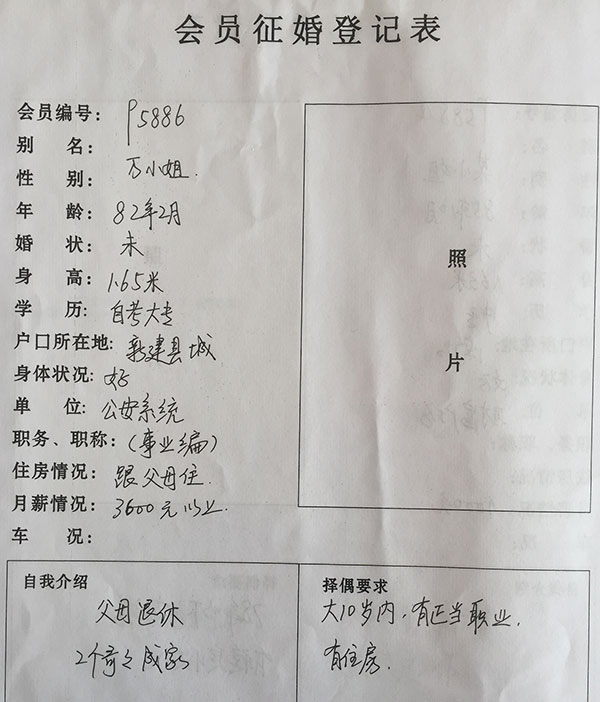 会员征婚登记表
会员编号: P5886
别 名:
性 别: 万小姐.
年 龄: 82年2月
婚 状: 未
身 高: 1.65米
学 历: 自考大专
户口所在地: 新建县城
身体状况: 好
单 位: 公安系统
职务、职称: (事业编)
住房情况: 跟父母住.
月薪情况: 3600元以上.
车 况:
照
片
自我介绍
父母退休
2个哥哥成家
择偶要求
大10岁内, 有正当职业,
有住房.